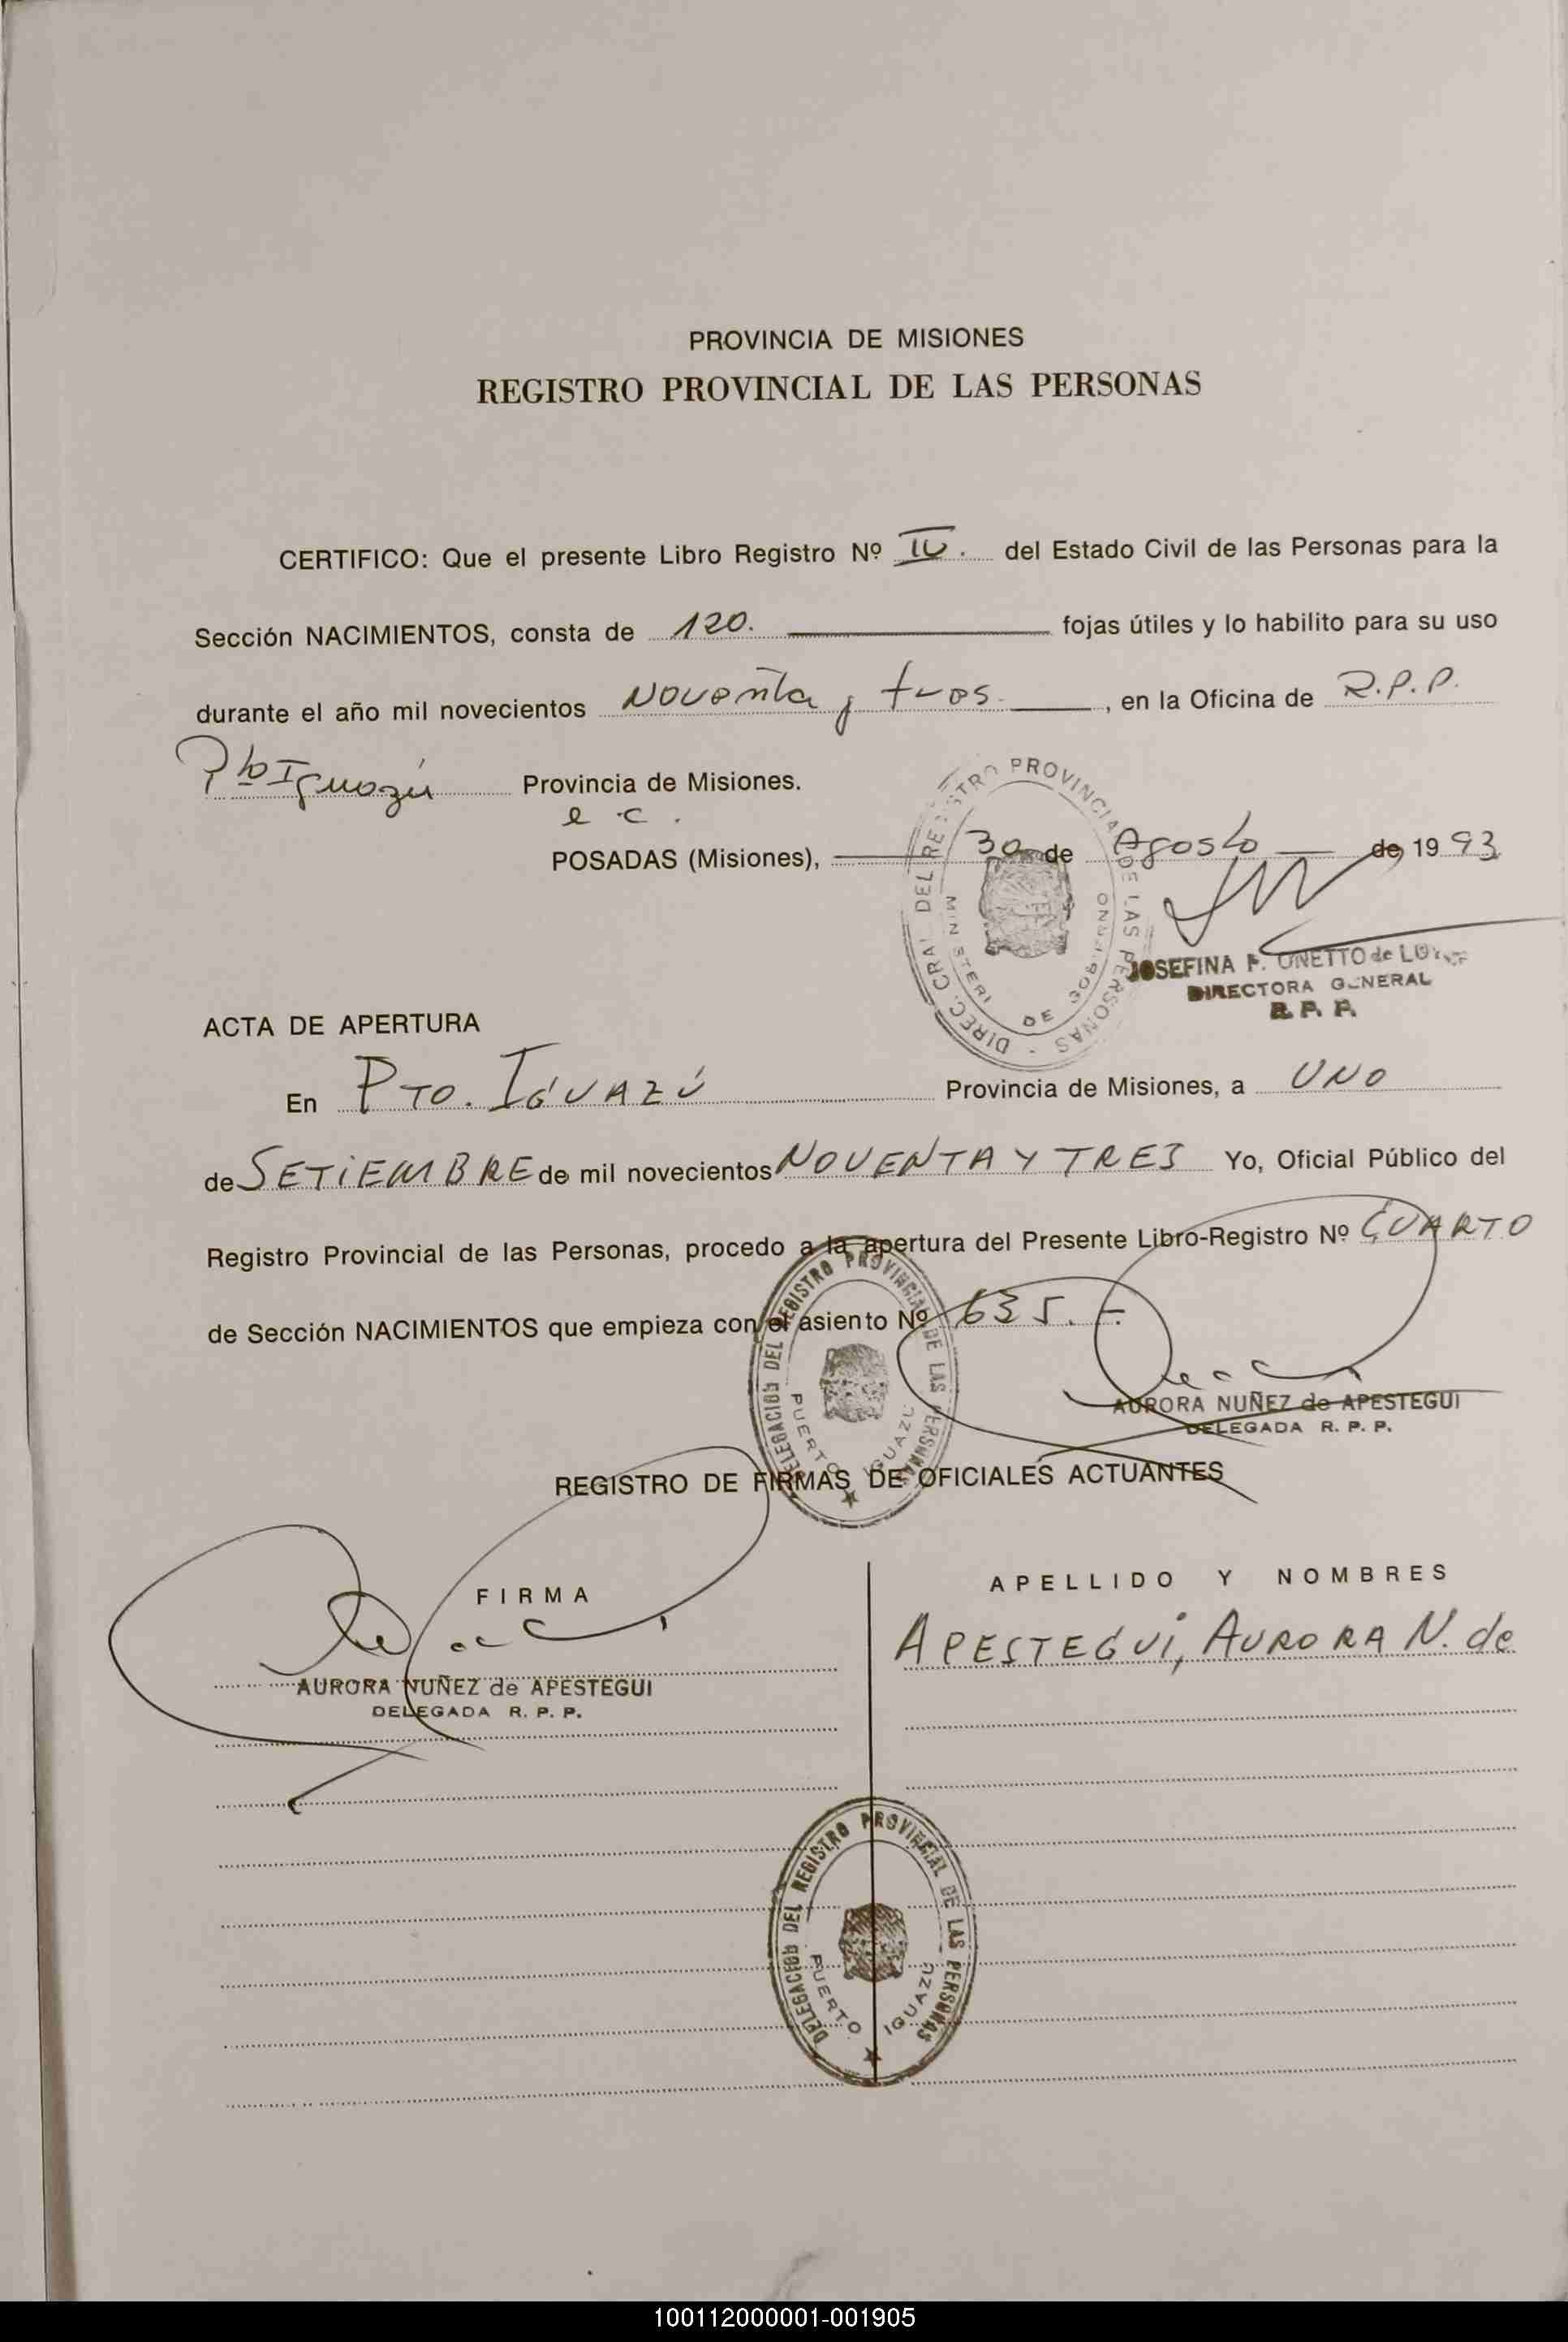 PROVINCIA DE MISIONES
REGISTRO PROVINCIAL DE LAS PERSONAS
CERTIFICO: Que el presente Libro Registro Nº IV. del Estado Civil de las Personas para la
Sección NACIMIENTOS, consta de 120. fojas útiles y lo habilito para su uso
durante el año mil novecientos Noventa y tres. , en la Oficina de R.P.P.
Pto Iguazú Provincia de Misiones.
POSADAS (Misiones), 30 de Agosto de 19 93
DIREC. GRAL DEL REGISTRO PROVINCIAL DE LAS PERSONAS -
MINISTERI DE GOBIERNO
JOSEFINA F. UNETTO de
DIRECTORA GENERAL
R. P. P.
ACTA DE APERTURA
En PTO. IGUAZÚ Provincia de Misiones, a UNO
de SETiEMBRE de mil novecientos NOVENTA Y TRES Yo, Oficial Público del
Registro Provincial de las Personas, procedo a la apertura del Presente Libro-Registro Nº CUARTO
de Sección NACIMIENTOS que empieza con el asiento Nº 635. -
AURORA NUÑEZ de APESTEGUI
DELEGADA R. P. P.
DELEGACION DEL REGISTRO PROVINCIAL DE LAS PERSONAS
PUERTO IGUAZU
REGISTRO DE FIRMAS DE OFICIALES ACTUANTES
FIRMA
APELLIDO Y NOMBRES
APESTEGUi, AURORA N. de
AURORA NUÑEZ de APESTEGUI
DELEGADA R. P. P.
DELEGACION DEL REGISTRO PROVINCIAL DE LAS PERSONAS
PUERTO IGUAZÚ
100112000001-001905